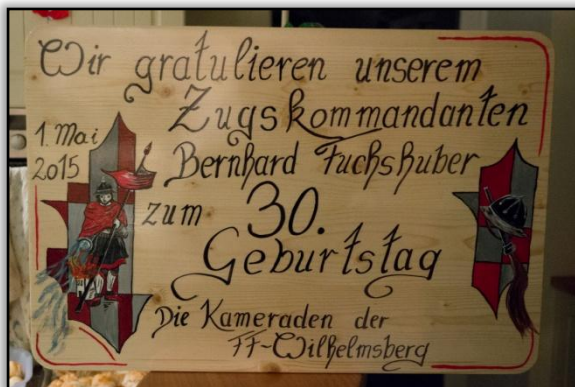 Wir gratulieren unserem
Zugskommandanten
1. Mai
2015
Bernhard Fuchshuber
zum 30.
Geburtstag
Die Kameraden der
FF-Wilhelmsberg